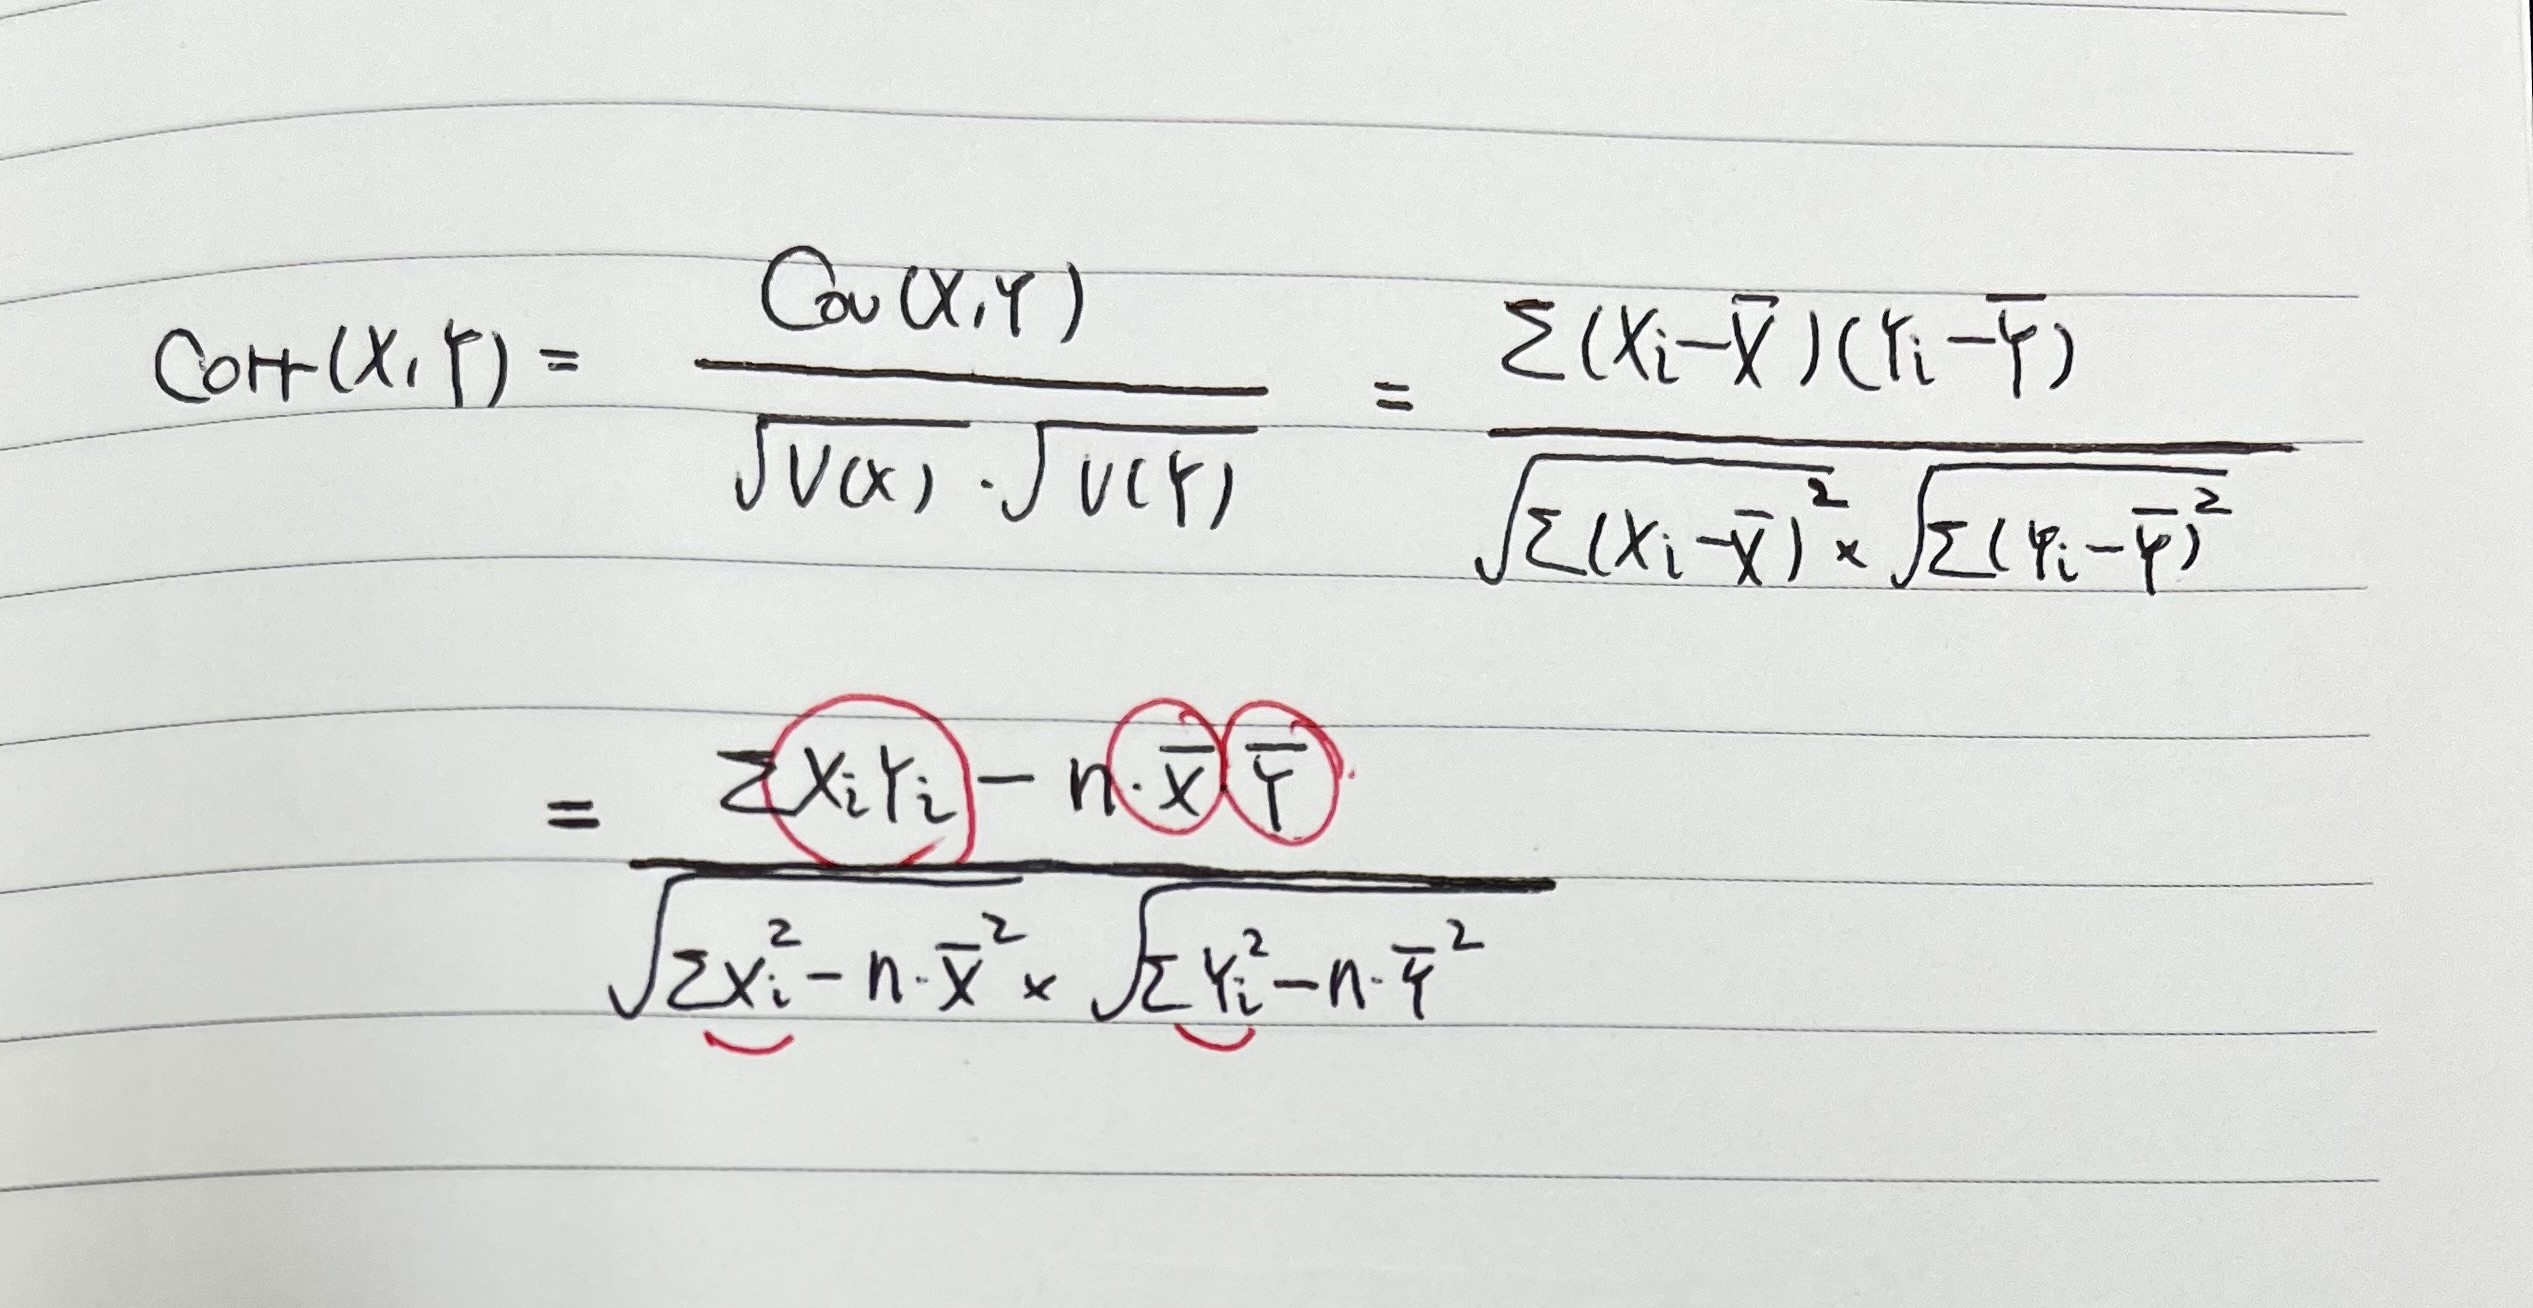 Corr(X,Y) = Cov(X,Y) / √V(X) · √V(Y) = Σ(Xi−X̄)(Yi−Ȳ) / √Σ(Xi−X̄)² × √Σ(Yi−Ȳ)²
= ΣXiYi − n·X̄ Ȳ / √ΣXi² − n·X̄² × √ΣYi² − n·Ȳ²